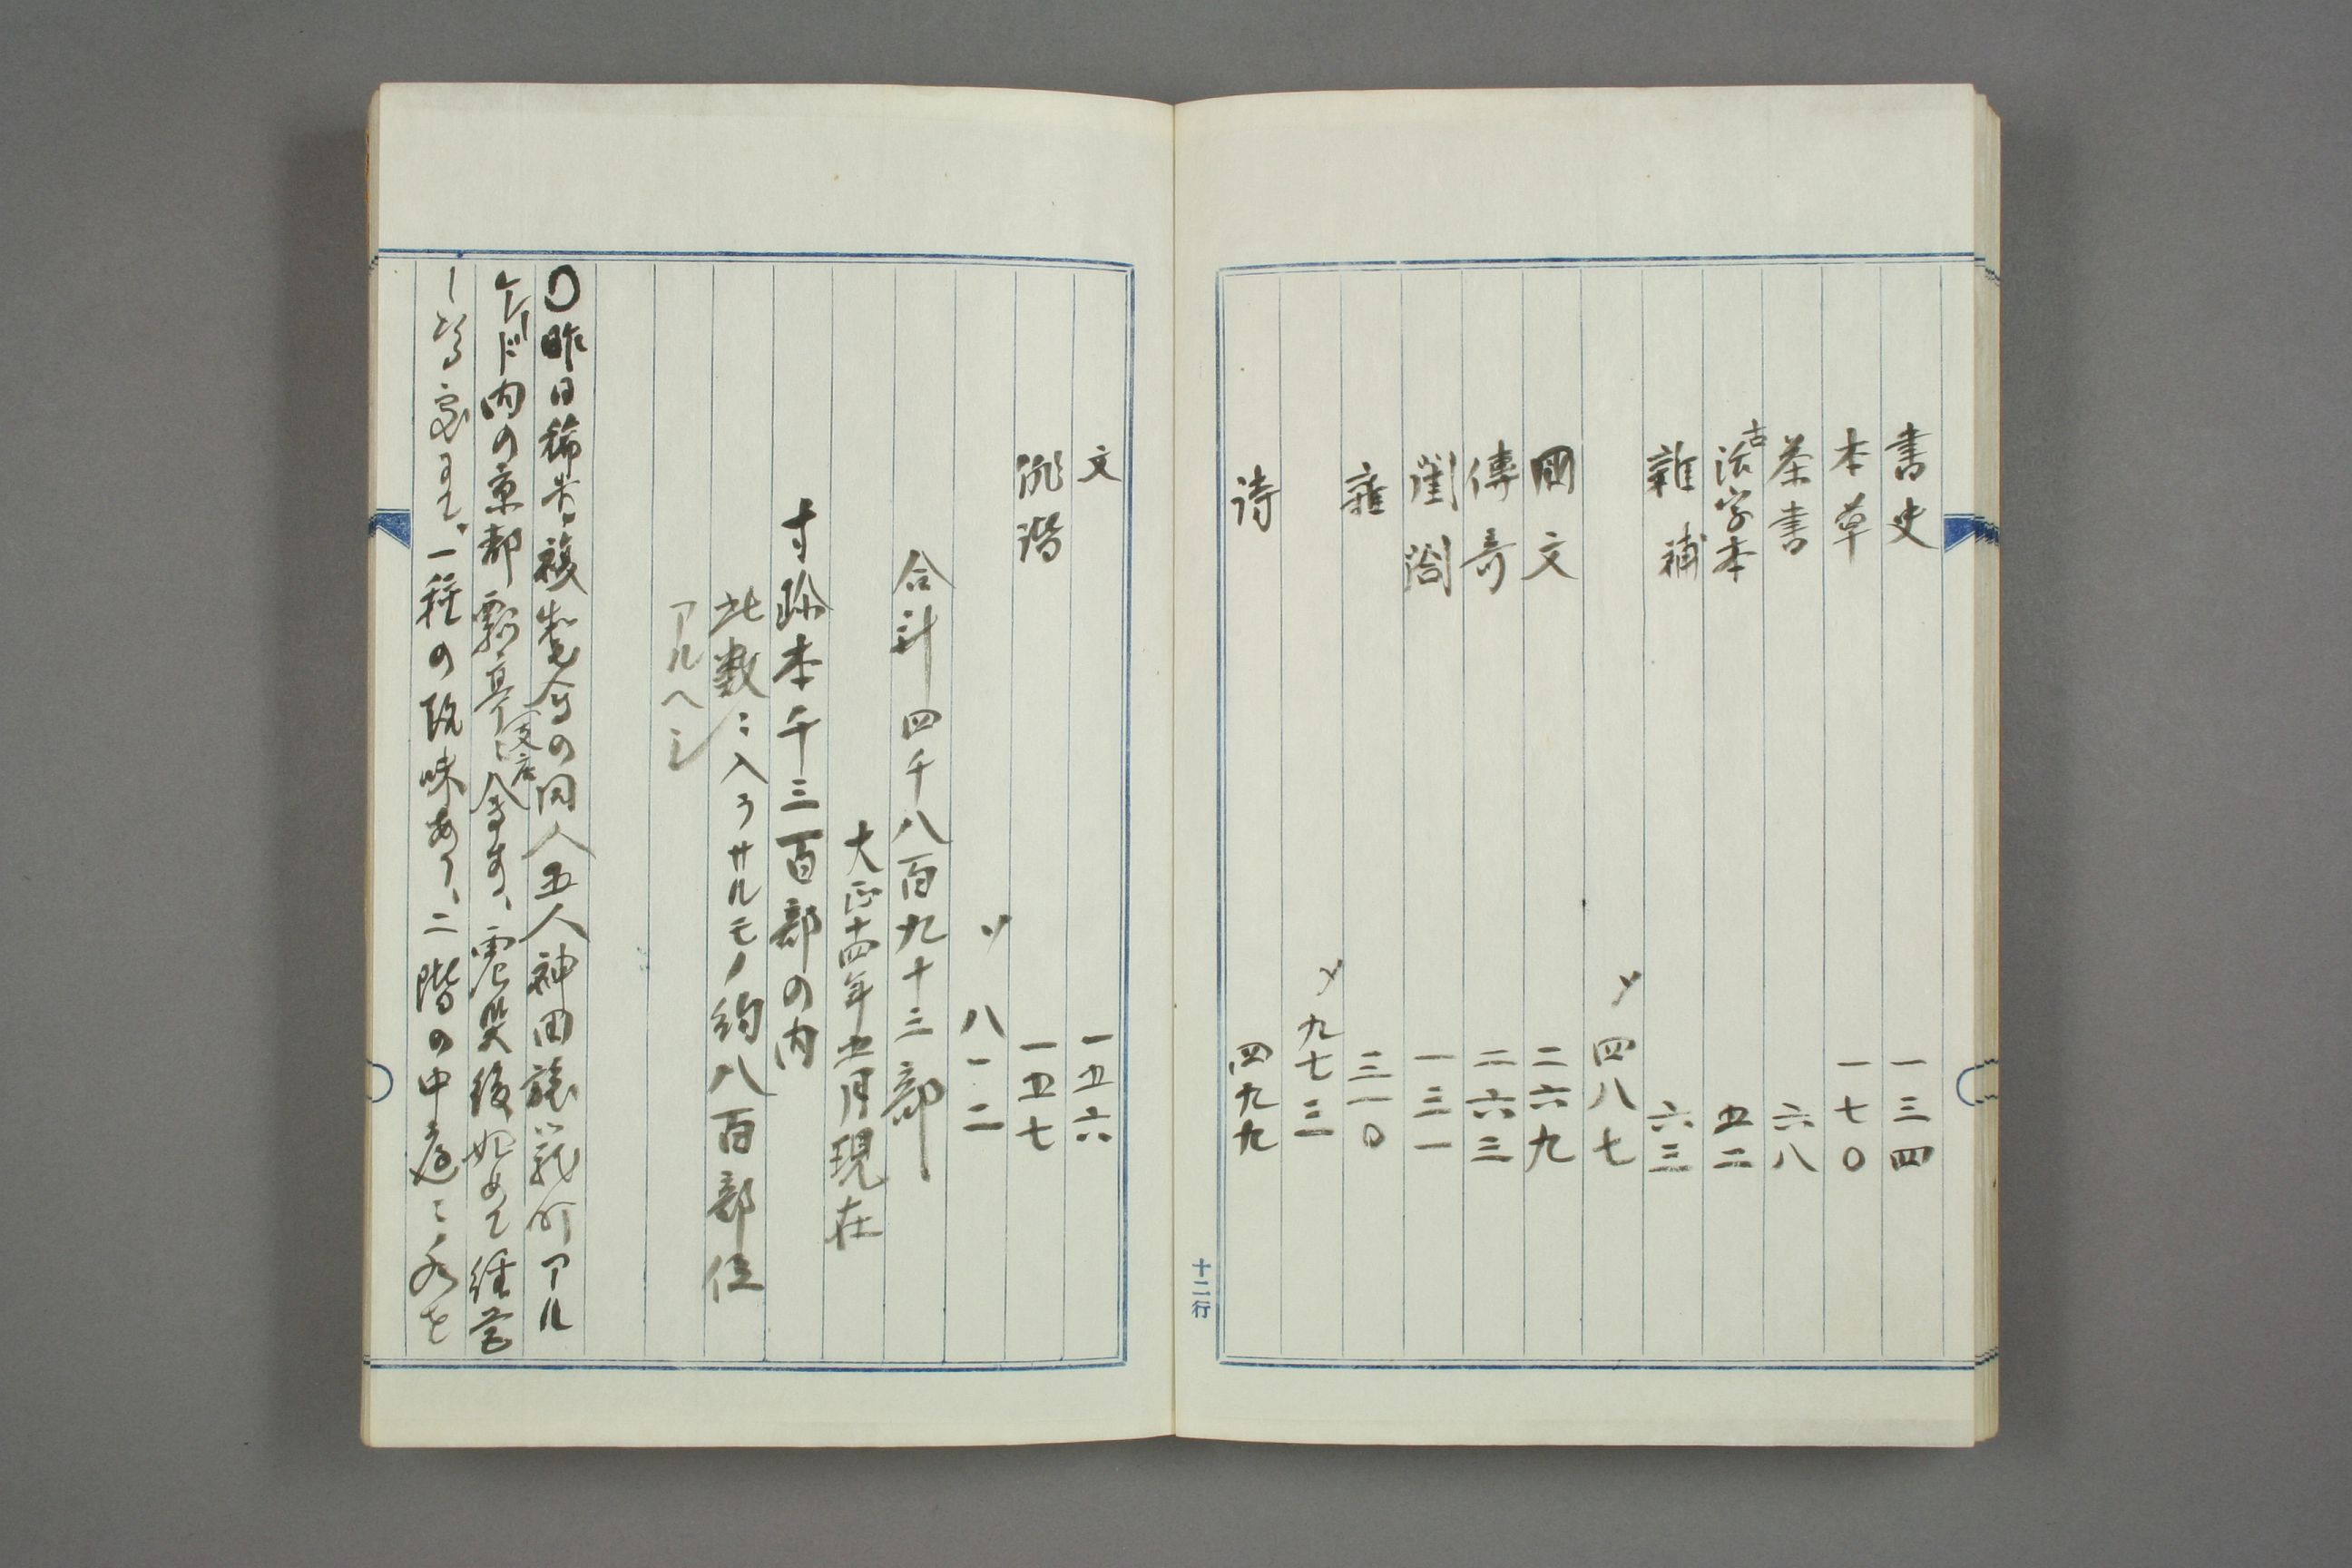 書史 一三四
本草 一七〇
茶書 六八
古活字本 五二
雑補 六三
〆四八七
国文 二六九
傳奇 二六三
閨閤 一三一
雑 三一〇
〆九七三
詩 四九九
十二行
文 一五六
俳諧 一五七
〆 八一二
合計 四千八百九十三部
大正十四年五月現在
寸珍本千三百部の内
此数ニ入ラサルモノ約八百部位
アルヘシ
〇昨日稀書複製会の同人五人神田旅籠町アル
ケード内の京都瓢亭支店に会す、震災後始めて経営
一種の趣味あり、二階の中庭に